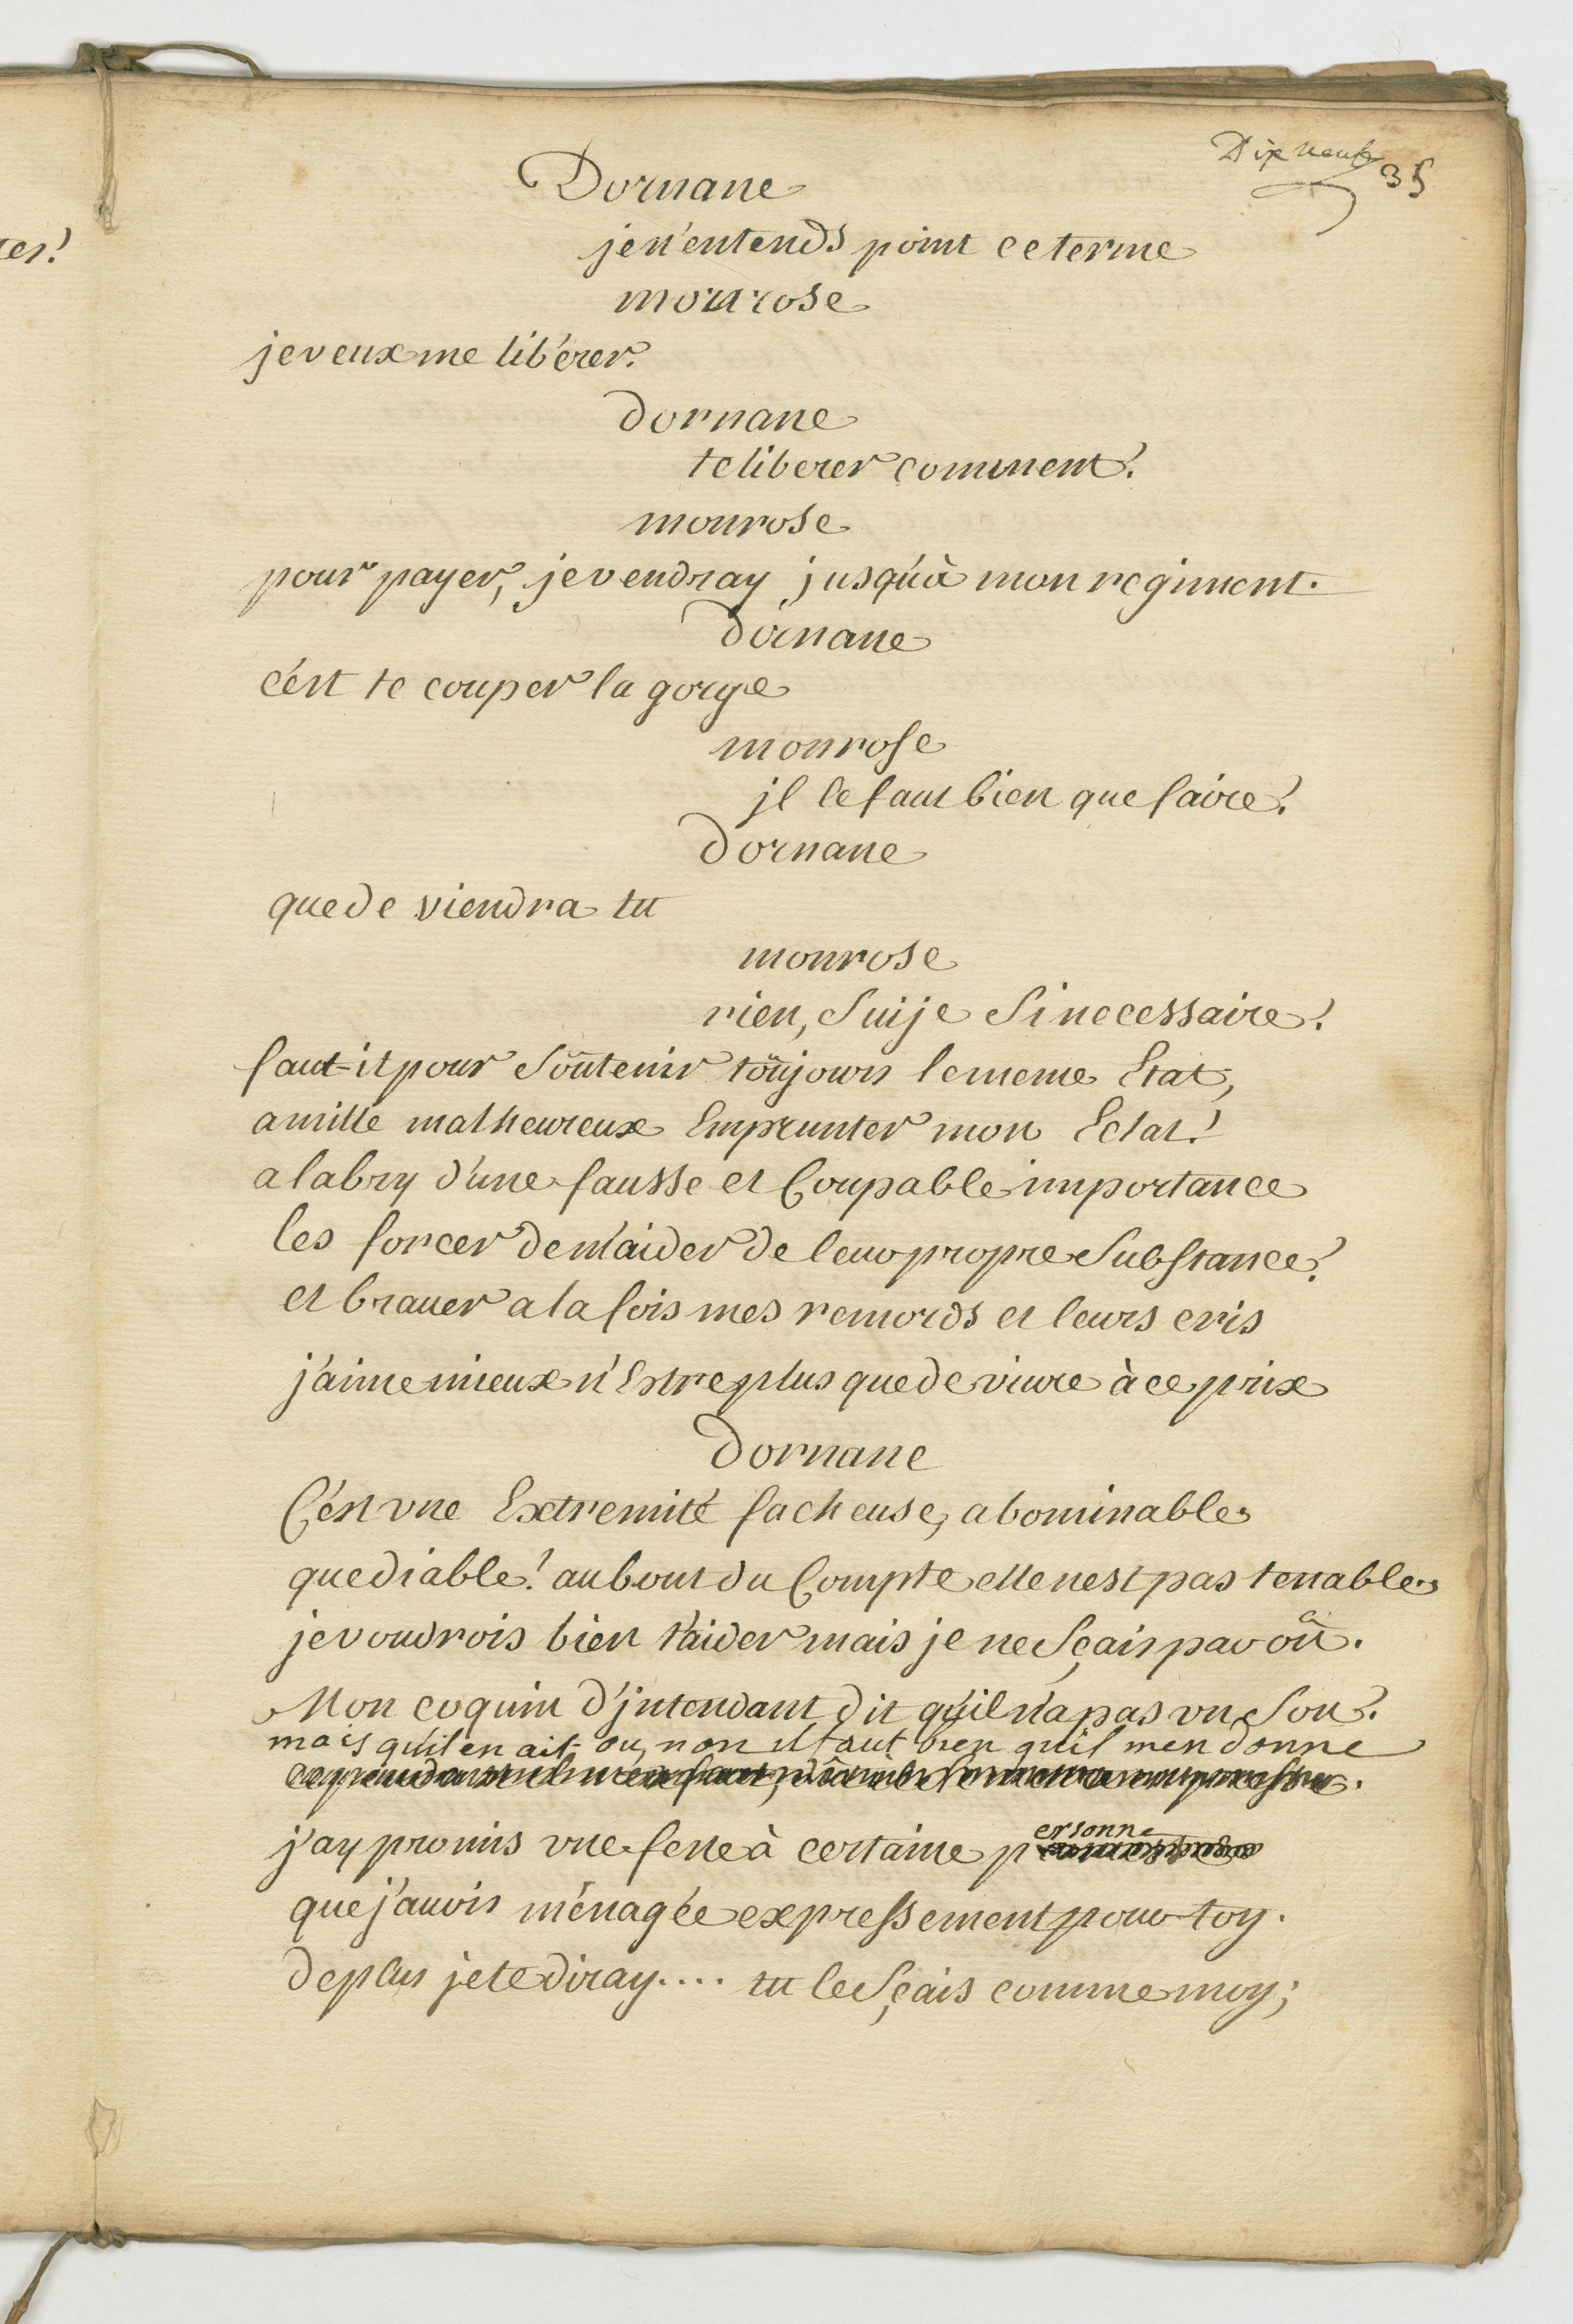 Dix neuf
35
Dornane
je n'entends point ce terme
monrose
je veux me libérer.
dornane
te liberer comment?
monrose
pour payer, je vendray jusqu'à mon regiment.
dornane
c'est te couper la gorge
monrose
jl le faut bien que faire?
dornane
que de viendra tu
monrose
rien, Suije Si necessaire?
faut-il pour Soûtenir toûjours le meme Etat,
a mille malheureux Emprunter mon Eclat?
a labry d'une fausse et Coupable importance
les forcer de m'aider de leur propre Substance?
et brauer a la fois mes remords et leurs cris
j'aime mieux n'Estre plus que de viure à ce prix
dornane
C'est vne Extremité facheuse, abominable
que diable! au bout du Compte elle nest pas tenable
je voudrois bien t'aider mais je ne Sçais par où.
Mon coquin d'jntendant dit qu'il n'a pas vn Sou.
mais qu'il en ait ou non il faut bien qu'il men donne
j'ay promis vne feste à certaine personne
que j'auois ménagée expressement pour toy.
de plus je te diray.... tu le Sçais comme moy;
ter?